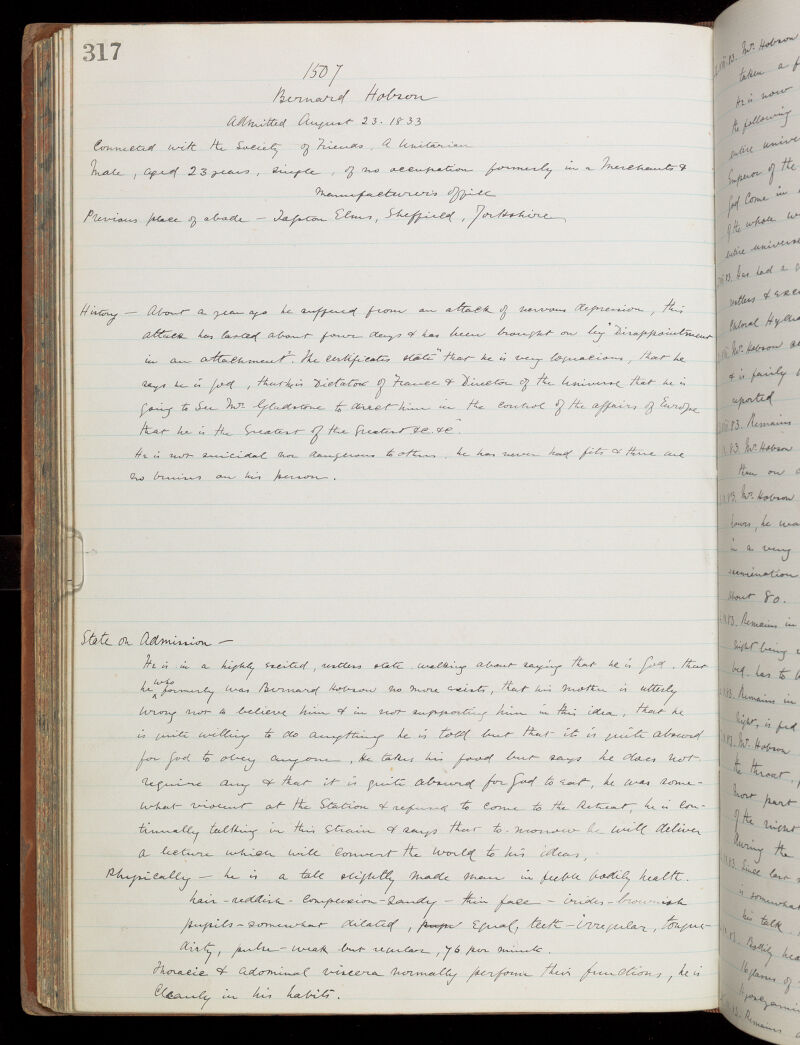 317
1507
Bernard Hobson
Admitted August 23. 1883
Connected with the Society of Friends, A Unitarian
Male, aged 23 years, single, of no occupation formerly in a Merchants &
Manufacturers office
Previous place of abode – Tapton Elms, Sheffield, Yorkshire
History – About a year ago he suffered from an attack of nervous depression, this
attack has lasted about four days & has been brought on by "Disappointment
in an attachment". The certificates state "that he is very loquacious, that he
says he is God, that his Dictator of France & Director of the Universe that he is
going to see Mr. Gladstone to direct him in the control of the affairs of Europe
that he is the Greatest of the Greatest &c &c".
He is not suicidal nor dangerous to others. he has never had fits & there are
no bruises on his person.
State on Admission –
He is in a highly excited, restless state walking about saying that he is God. that
he who formerly was Bernard Hobson no more exists, that his mother is utterly
wrong not to believe him & in not supporting him in this idea, that he
is quite willing to do anything he is told but that it is quite absurd
for God to obey anyone. He takes his food but says he does not
require any & that it is quite absurd for God to eat, he was some-
what violent at the Station & refused to come to the Retreat, he is con-
tinually talking in this strain & says that to-morrow he will deliver
a lecture which will convert the world to his ideas,
Physically – he is a tall slightly made man in feeble bodily health.
hair – reddish – Complexion – Sandy – thin face – irides – brownish
pupils – somewhat dilated, equal, teeth – irregular, tongue –
dirty, pulse – weak but regular, 76 per minute.
Thoracic & adominal viscera normally perform their functions, he is
Cleanly in his habits.
Mr. Hobson
taken a
He is now
the following
entire
Emperor of the
God Come in
of the whole
entire universe
Has had a
restless &
Chloral
Mr. Hobson
& is fairly
reported
83. Remains
83. Mr. Hobson
than on
83. Mr. Hobson
hours, he
in a very
examination
about 80.
83. Remains in
night being
bed. has to
Remains in
night, is fed
Mr. Hobson
the throat,
most part
of the night
during the
Since last
is somewhat
his talk
Bodily
Remains